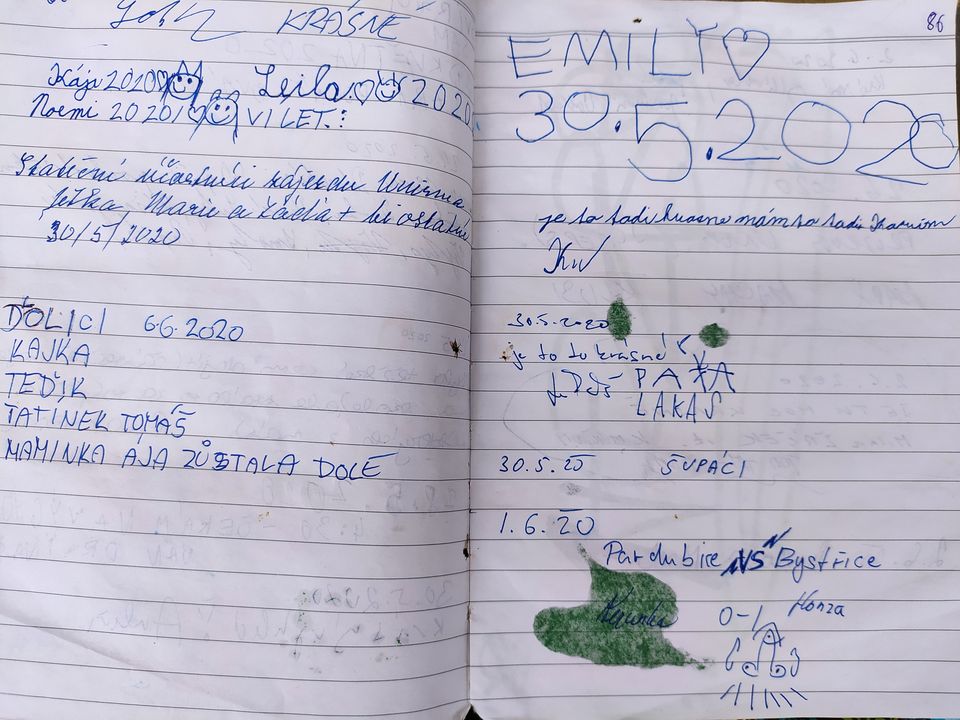 KRÁSNE
Kája 2020
Leila 2020
Noemi 2020 VI LET.
Stateční účastníci zájezdu
Jitka, Marie a + ti ostatní
30/5/2020
DOLICI 6.6.2020
KAJKA
TEĎIK
TATINEK TOMÁŠ
MAMINKA AJA ZŮSTALA DOLE
86
EMILY
30.5.2020
je to tadi krasne mám to tadi
30.5.2020
je to tu krásné
PAŤA
LAKAS
30.5.20 ŠUPÁCI
1.6.20
Pardubice VS Bystřice
0-1 Honza